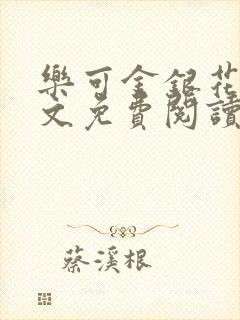 樂可金銀花
文免費閱讀
蔡溪根